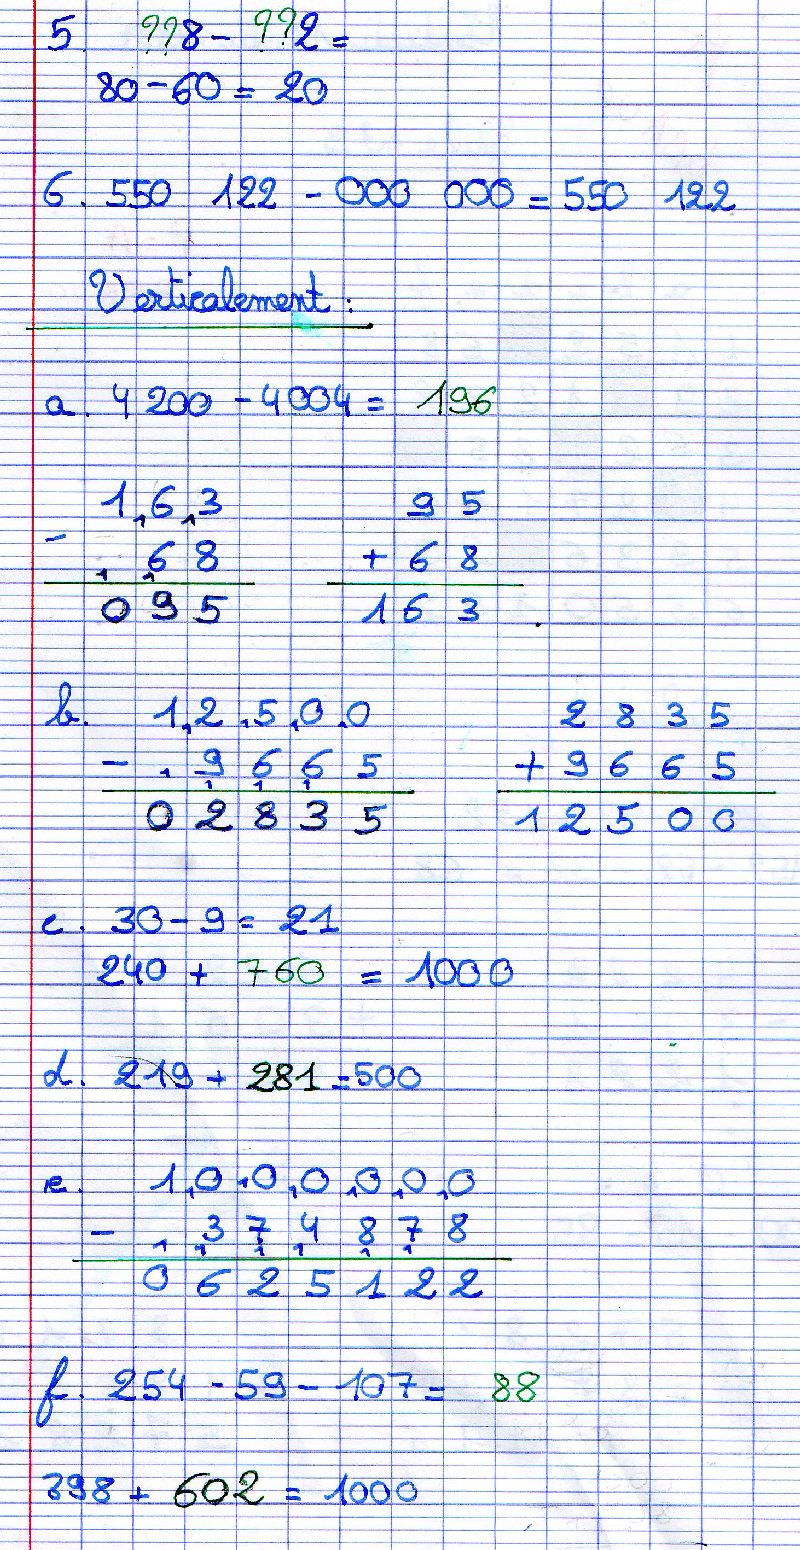 5. ??8 - ??2 =
80 - 60 = 20
6. 550 122 - 000 000 = 550 122
Verticalement :
a. 4 200 - 4004 = 196
1 6 3
- 6 8
0 9 5
9 5
+ 6 8
1 6 3
b. 1 2 5 0 0
- 9 6 6 5
0 2 8 3 5
2 8 3 5
+ 9 6 6 5
1 2 5 0 0
c. 30 - 9 = 21
240 + 760 = 1000
d. 219 + 281 = 500
e. 1 0 0 0 0 0 0
- 3 7 4 8 7 8
0 6 2 5 1 2 2
f. 254 - 59 - 107 = 88
398 + 602 = 1000